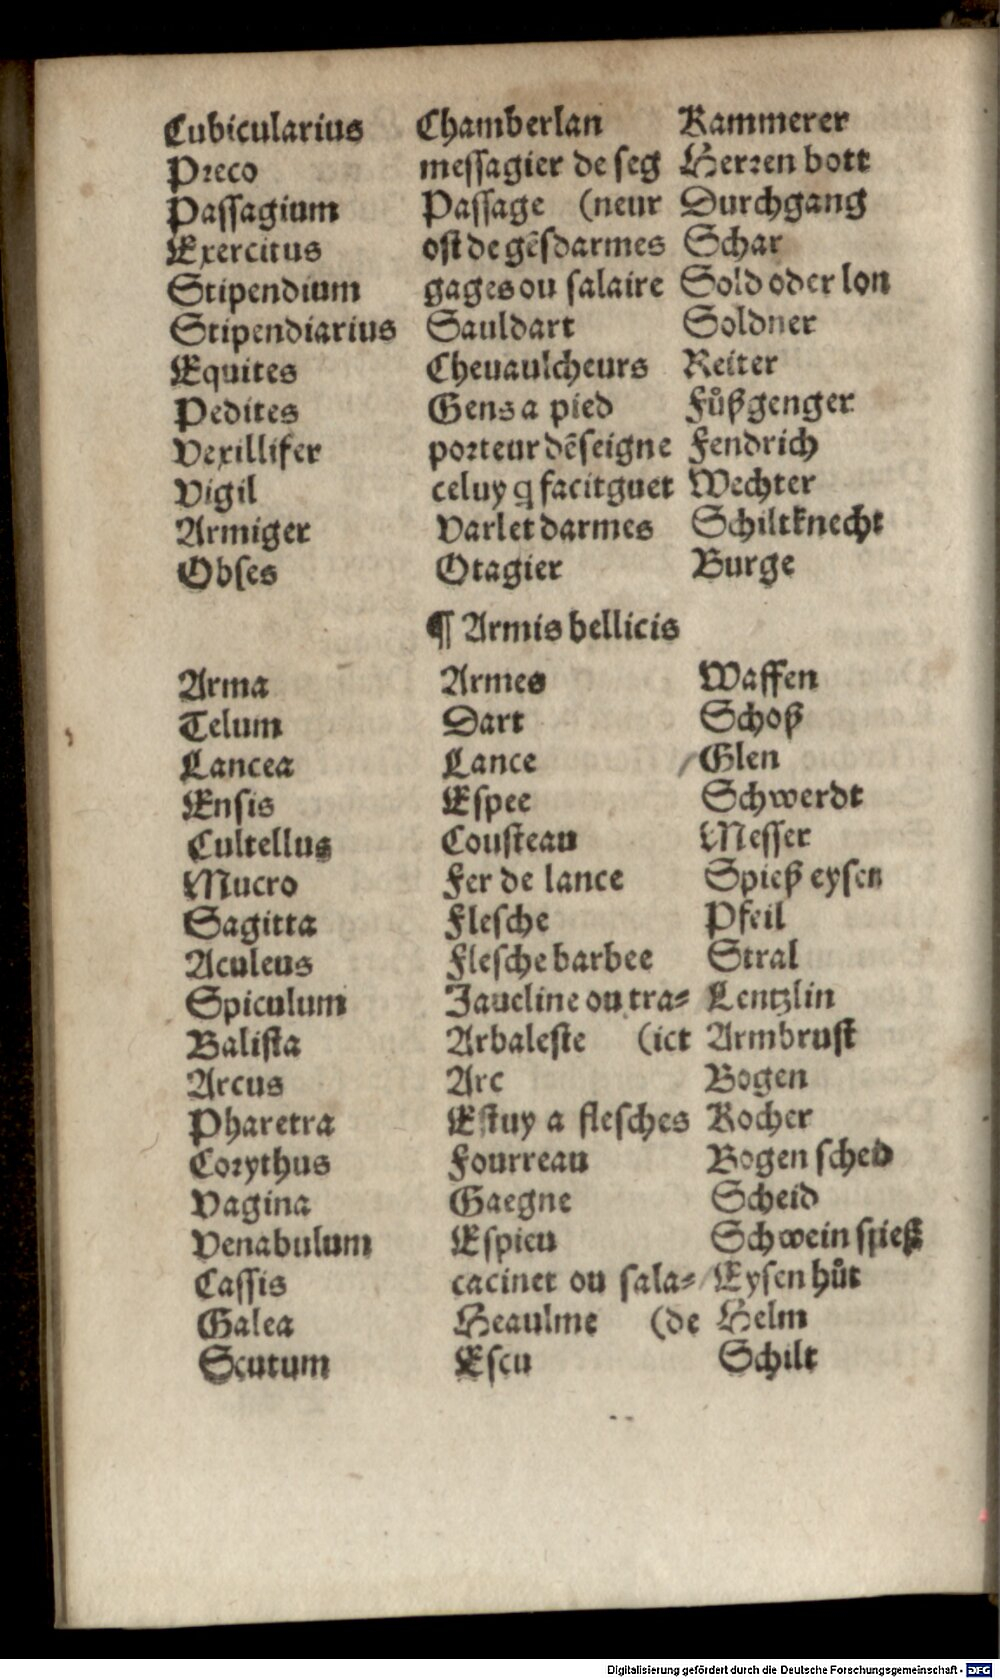 Cubicularius Chamberlan Kammerer
Preco meſſagier de ſeg Herren bott
Paſſagium Paſſage (neur Durchgang
Exercitus oſt de gẽſdarmes Schar
Stipendium gages ou ſalaire Sold oder lon
Stipendiarius Sauldart Soldner
Equites Cheuaulcheurs Reiter
Pedites Gens a pied Fůßgenger
Vexillifer porteur dẽſeigne Fendrich
Vigil celuy q facit guet Wechter
Armiger Varlet darmes Schiltknecht
Obſes Otagier Burge
¶ Armis bellicis
Arma Armes Waffen
Telum Dart Schoß
Lancea Lance Glen
Enſis Eſpee Schwerdt
Cultellus Couſteau Meſſer
Mucro Fer de lance Spieß eyſen
Sagitta Fleſche Pfeil
Aculeus Fleſche barbee Stral
Spiculum Jaueline ou tra⸗ Lentzlin
Baliſta Arbaleſte (ict Armbruſt
Arcus Arc Bogen
Pharetra Eſtuy a fleſches Kocher
Corythus Fourreau Bogen ſched
Vagina Gaegne Scheid
Venabulum Eſpieu Schwein ſpieß
Caſſis cacinet ou ſala⸗ Eyſen hůt
Galea Heaulme (de Helm
Scutum Eſcu Schilt
Digitalisierung gefördert durch die Deutsche Forschungsgemeinschaft - DFG